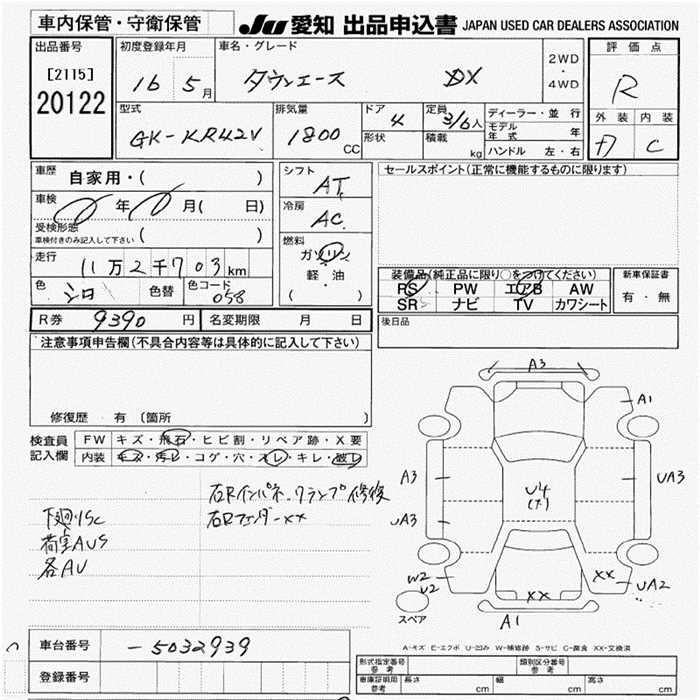 車内保管・守衛保管
JU 愛知 出品申込書 JAPAN USED CAR DEALERS ASSOCIATION
出品番号
[2115]
20122
初度登録年月
16 5月
車名・グレード
タウンエース DX
2WD
・
4WD
評価点
R
外装 内装
C
型式
GK-KR42V
排気量
1800 CC
ドア 4
形状
定員 3/6人
積載 kg
ディーラー・並行
モデル年式 年
ハンドル 左・右
車歴
自家用・( )
車検 年 月( 日)
受検形態
車検付きのみ記入して下さい ( )
走行 11万2千703km
色 シロ 色替 色コード 058
シフト AT
冷房 AC
燃料
ガソリン
軽・油
( )
セールスポイント(正常に機能するものに限ります)
装備品(純正品に限り○をつけてください)
RS PW エアB AW
SRS ナビ TV カワシート
新車保証書
有・無
後日品
R券 9390円 名変期限 月 日
注意事項申告欄(不具合内容等は具体的に記入して下さい)
修復歴 有 〔箇所 〕
検査員記入欄
FW キズ・飛石・ヒビ割・リペア跡・X要
内装 キズ・汚レ・コゲ・穴・スレ・キレ・破レ
右Rインパネ、クランプ修復
右Rフェンダーxx
下廻りSC
荷室AUS
各AU
A3
A1
A3
UA3
U4
UA3
W2
U2
XX
XX
UA2
A1
スペア
A-キズ E-エクボ U-凹み W-補修跡 S-サビ C-腐食 XX-交換済
車台番号 -5032939
登録番号
形式指定番号 参考
類別区分番号 参考
車庫証明用 参考 長さ cm 幅 cm 高さ cm